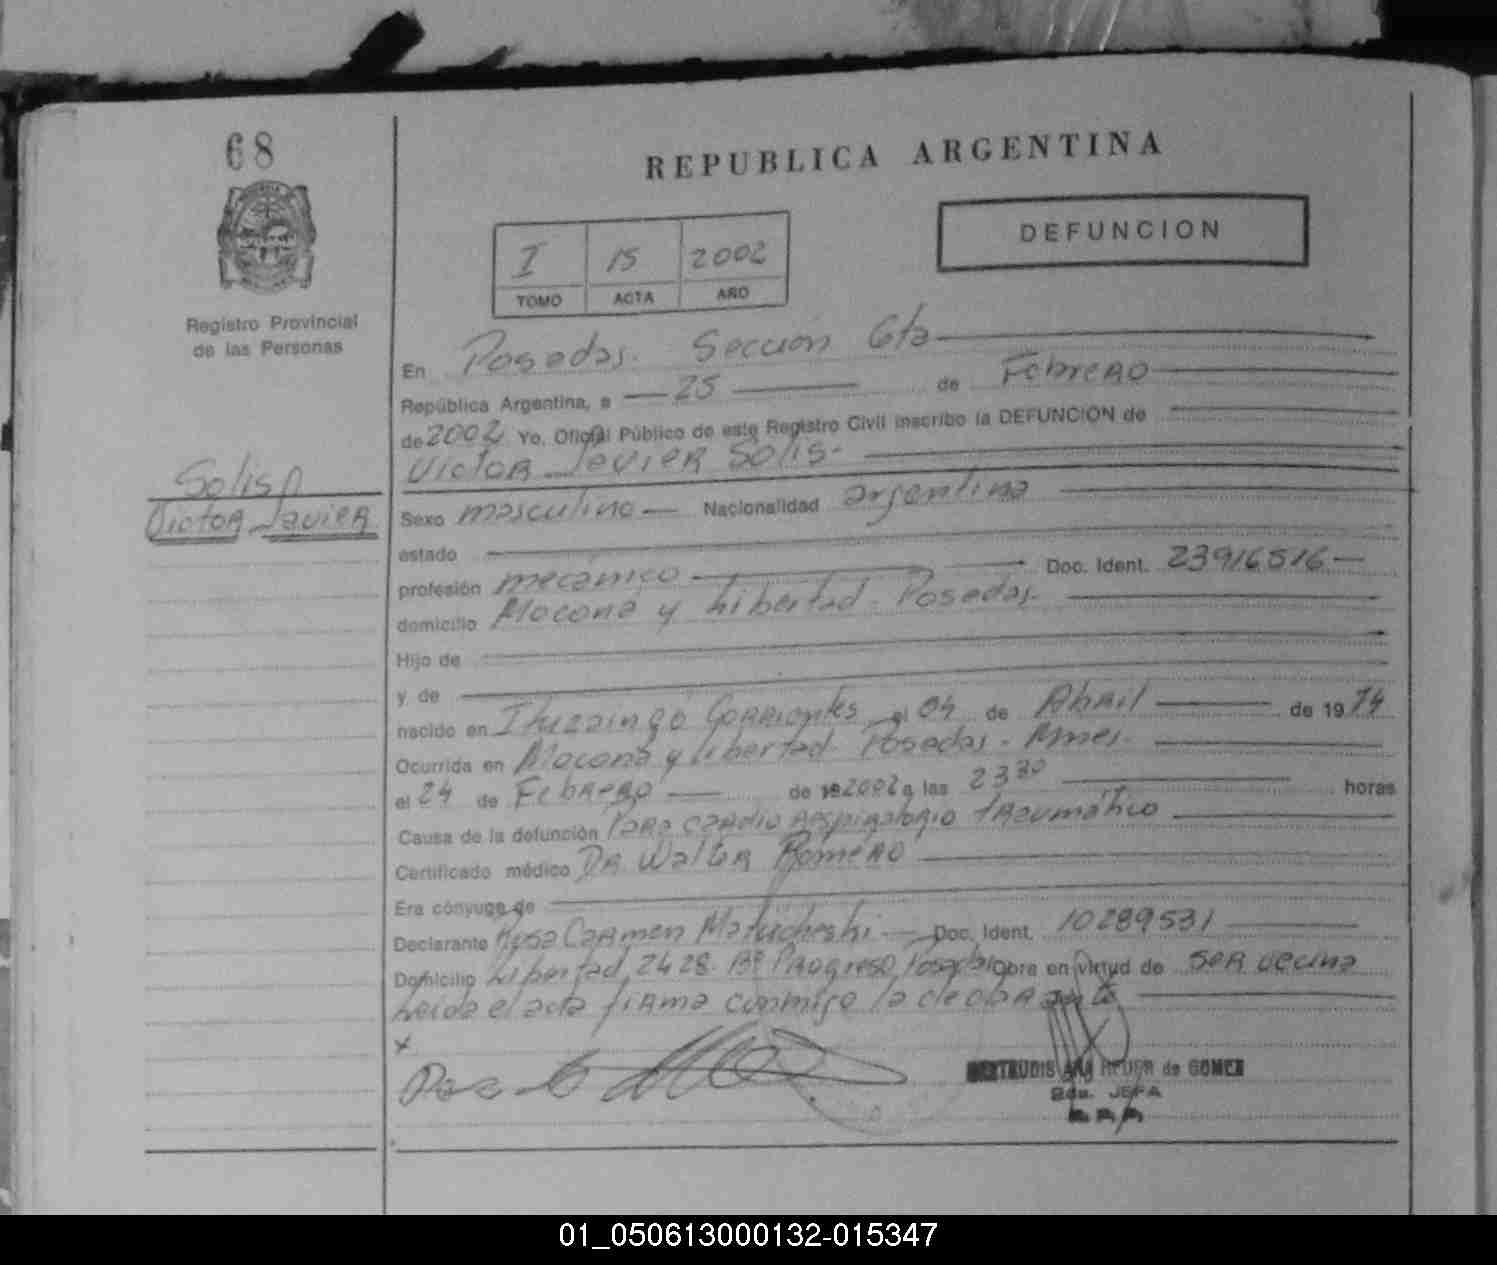 68
REPUBLICA ARGENTINA
DEFUNCION
I 15 2002
TOMO ACTA AÑO
Registro Provincial
de las Personas
En Posadas. Sección 6ta
República Argentina, a 25 de Febrero
de 2002 Yo, Oficial Público de este Registro Civil inscribo la DEFUNCION de
Victor Javier Solis
Solis
Victor Javier
Sexo masculino Nacionalidad argentina
estado
profesión mecánico Doc. Ident. 23916516
domicilio Mocona y Libertad - Posadas
Hijo de
y de
nacido en Ituzaingo Corrientes el 04 de Abril de 1974
Ocurrida en Mocona y Libertad Posadas - Mnes.
el 24 de Febrero de 192002 a las 23 30 horas
Causa de la defunción Paro cardio respiratorio traumático
Certificado médico Dr Walter Romero
Era cónyuge de
Declarante Rosa Carmen Doc. Ident. 10289531
Domicilio Libertad 2428 Bº Progreso Posadas Obra en virtud de ser vecina
Leida el acta firma conmigo la declarante
x
GERTRUDIS de GOMEZ
JEFA
01_050613000132-015347